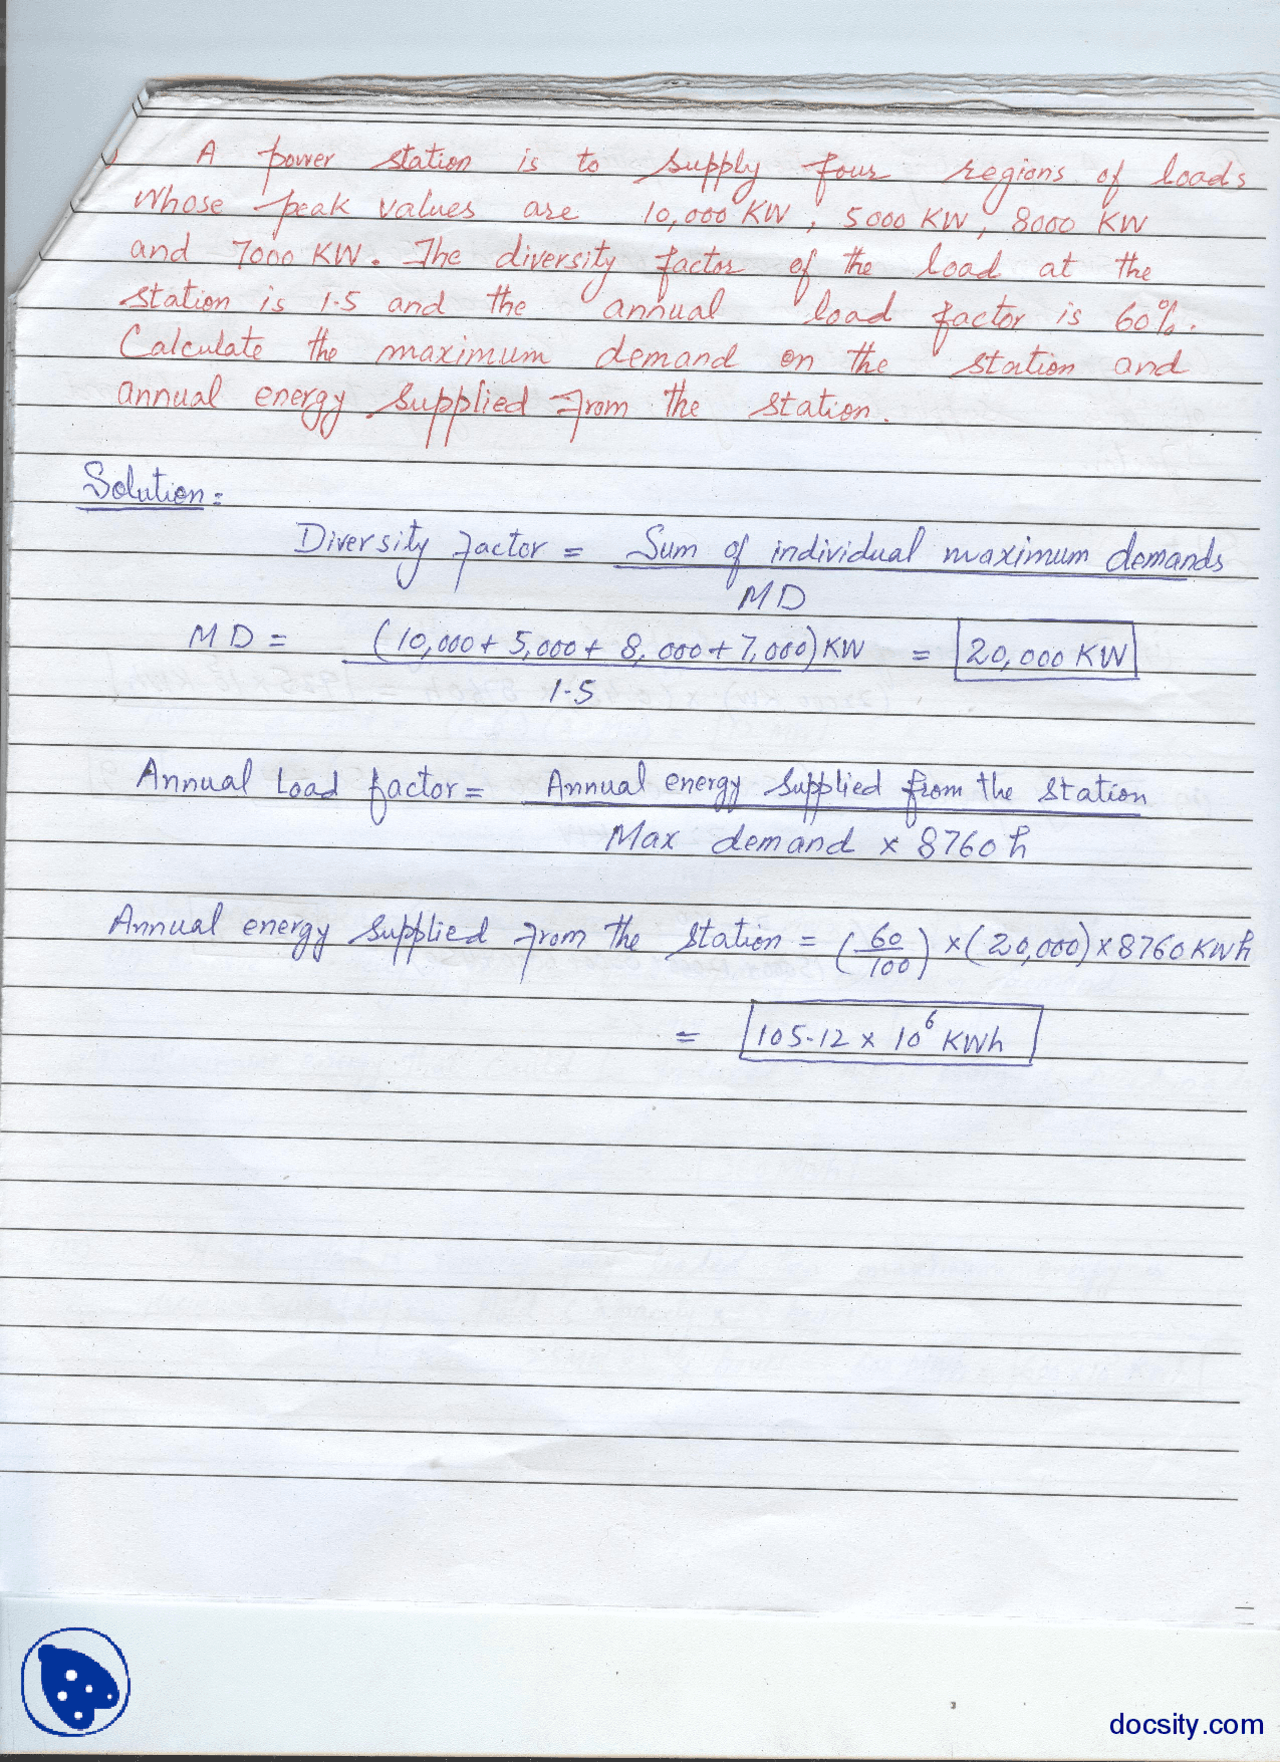 A power station is to supply four regions of loads
whose peak values are 10,000 KW, 5000 KW, 8000 KW
and 7000 KW. The diversity factor of the load at the
station is 1.5 and the annual load factor is 60%.
Calculate the maximum demand on the station and
annual energy supplied from the station.
Solution:
Diversity factor = Sum of individual maximum demands
MD
MD = (10,000 + 5,000 + 8,000 + 7,000) KW = 20,000 KW
1.5
Annual Load factor = Annual energy supplied from the station
Max demand × 8760 h
Annual energy supplied from the station = (60/100) × (20,000) × 8760 KWh
= 105.12 × 10⁶ KWh
docsity.com